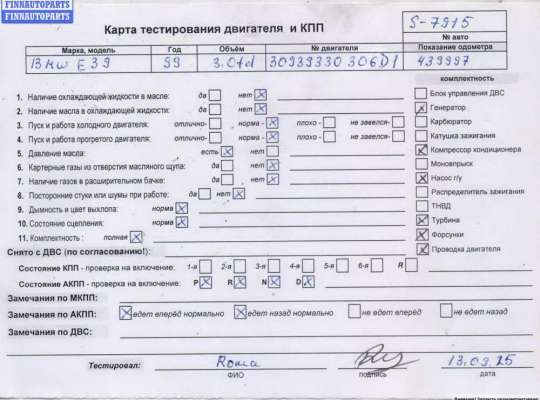 FINNAUTOPARTS
FINNAUTOPARTS
FINNAUTOPARTS
Карта тестирования двигателя и КПП
S-7915
№ авто
Марка, модель Год Объём № двигателя Показание одометра
BMW E39 99 3.0td 30939330 306D1 439997
комплектность
1. Наличие охлаждающей жидкости в масле: да нет
2. Наличие масла в охлаждающей жидкости: да нет
3. Пуск и работа холодного двигателя: отлично- норма - плохо - не завелся-
4. Пуск и работа прогретого двигателя: отлично- норма - плохо - не завелся-
5. Давление масла: есть нет
6. Картерные газы из отверстия масляного щупа: да нет
7. Наличие газов в расширительном бачке: да нет
8. Посторонние стуки или шумы при работе: да нет
9. Дымность и цвет выхлопа: норма
10. Состояние сцепления: норма
11. Комплектность : полная
Блок управления ДВС
Генератор
Карбюратор
Катушка зажигания
Компрессор кондиционера
Моновпрыск
Насос г/у
Распределитель зажигания
ТНВД
Турбина
Форсунки
Проводка двигателя
Снято с ДВС (по согласованию!):
Состояние КПП - проверка на включение: 1-я 2-я 3-я 4-я 5-я 6-я R
Состояние АКПП - проверка на включение: P R N D
Замечания по МКПП:
Замечания по АКПП: едет вперёд нормально едет назад нормально не едет вперёд не едет назад
Замечания по ДВС:
Тестировал: Roma 13.09.25
ФИО подпись дата